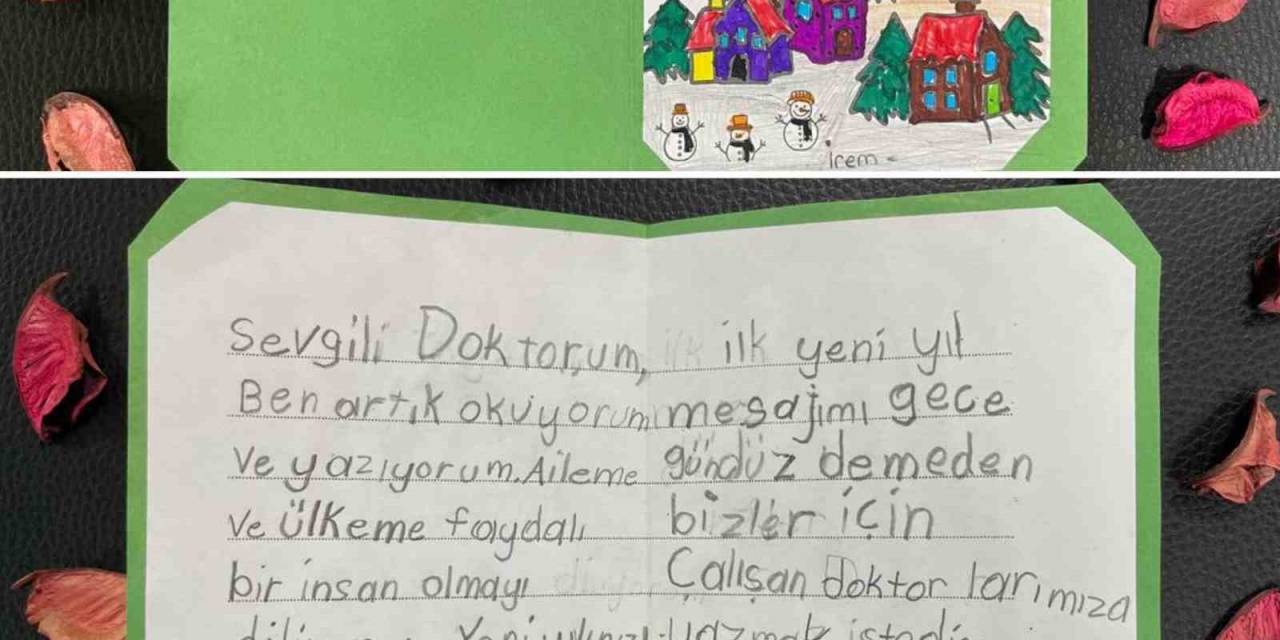 İrem
Sevgili Doktorum,
Ben artık okuyorum
ve yazıyorum. Aileme
ve ülkeme faydalı
bir insan olmayı
ilk yeni yıl
mesajımı gece
gündüz demeden
bizler için
Çalışan doktorlarımıza
yazmak istedi